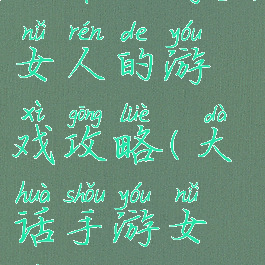 nǚ rén de yóu
女人的游
xì gōng lüè dà
戏攻略(大
huà shǒu yóu nǚ
话手游女